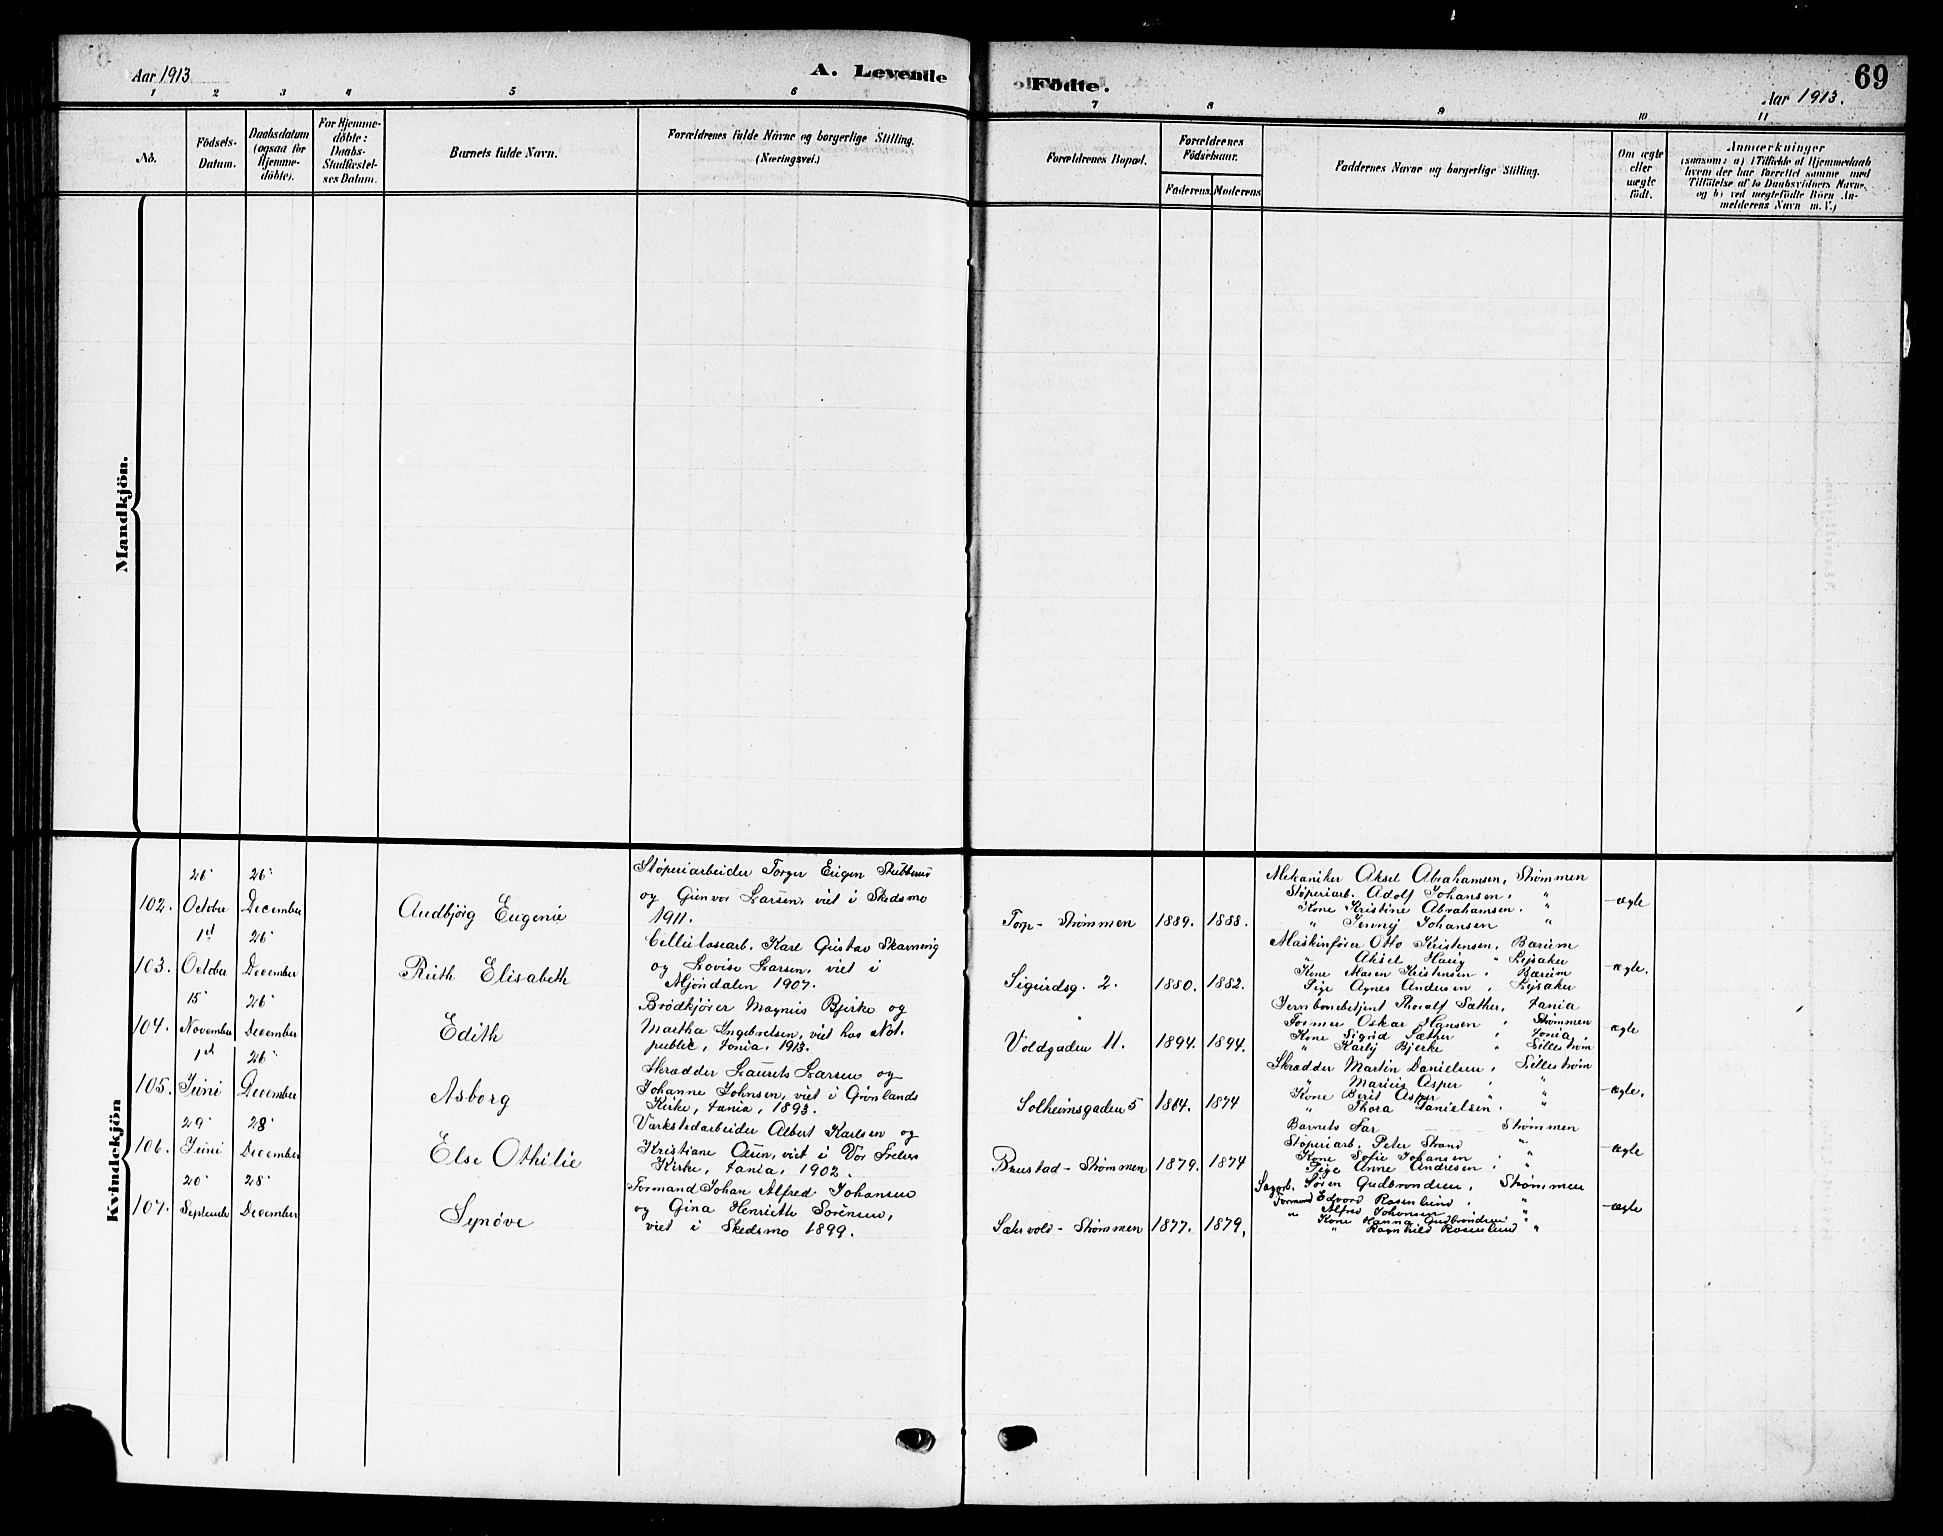 Aar 1913
A. Levende
Födte.
69
Aar 1913.
1 2 3 4 5 6 7 8 9 10 11
No.
Födsels-
Datum.
Daabsdatum
(ogsaa for
Hjemme-
döbte).
For Hjemme-
döbte:
Daabs-
Stadfæstel-
ses Datum.
Barnets fulde Navn.
Forældrenes fulde Navne og borgerlige Stilling.
(Næringsvei.)
Forældrenes Bopæl.
Forældrenes
Födselsaar.
Faderens. Moderens.
Faddernes Navne og borgerlige Stilling.
Om ægte
eller
uægte
födt.
Anmærkninger
(saasom: a) i Tilfælde af Hjemmedaab
hvem der har forrettet samme med
Tilföielse af to Daabsvidners Navne,
og b) ved uægtefödte Börn An-
melderens Navn m. V.)
Mandkjön.
Kvindekjön
102.
26.
October
26.
December
Audbjørg Eugenie
Støperiarbeider Torger Eugen
og Gunvor Larsen, viet i Skedsmo
1911.
Torp - Strømmen
1889. 1888.
Mekaniker Aksel Abrahamsen, Strømmen
Støperiarb. Adolf Johansen, "
Kone Kristine Abrahamsen. "
" Jenny Johansen "
ægte
103.
1ste
October
26.
December
Ruth Elisabeth
Cellulosearb. Karl Gustav Skarnvig
og Lovise Larsen, viet i
Mjøndalen 1907.
Sigurdsg. 2.
1880. 1882.
Maskinfører Otto Kristensen, Bærum
" Aksel Haug " Lysaker
Kone Maren Kristensen, Bærum
Pige Agnes Andersen, Lysaker
ægte.
104.
15.
November
26.
December
Edith
Brødkjører Magnus Bjerke og
Martha Ingebretsen, viet hos Not.
public, Xania, 1913.
Voldgaden 11.
1894. 1894.
Jernbanebetjent Thoralf Sæther, Xania
Former Oskar Hansen, Strømmen
Kone Sigrid Sæther, Xania
" Karly Bjerke " Lillestrøm
ægte
105.
1ste
Juni
26.
December
Asborg
Skrædder Laurits Larsen og
Johanne Johnsen, viet i Grønlands
Kirke, Xania, 1893.
Solheimsgaden 5
1864. 1874
Skrædder Martin Danielsen, Lillestrøm
" Marius Asper, "
Kone Berit Asper " "
" Thora Danielsen, "
ægte.
106.
29.
Juni
28.
December
Else Othilie
Værkstedarbeider Albert Karlsen og
Kristiane Olsen, viet i Vor Frelsers
Kirke, Xania, 1902.
Brustad - Strømmen
1879. 1874
Barnets Far Strømmen
Støperiarb. Peter Strand "
Kone Sofie Johansen, "
Pige Anne Andresen, "
ægte
107.
20.
September
28.
December
Synøve
Formand Johan Alfred Johansen
og Gina Henriette Sørensen,
viet i Skedsmo 1899.
Sæksvold - Strømmen
1877. 1879.
Sagarb. Søren Gudbrandsen, Strømmen
Formand Edvard Rosenlund, "
" Alfred Johansen "
Kone Hanna Gudbrandsen "
" Ragnhild Rosenlund "
ægte